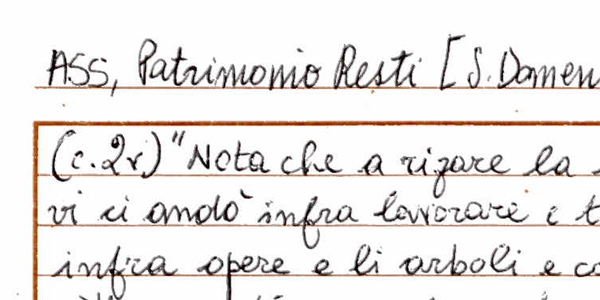 ASS, Patrimonio Resti [S. Domen
(c.2r) "Nota che a rifare la
vi ci andò infra lavorare e t
infra opere e li arboli e co